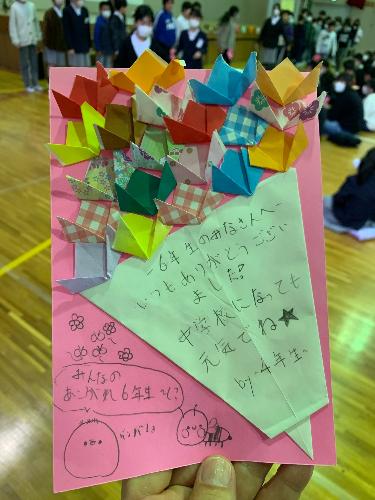 ~6年生のみなさんへ~
いつもありがとうござい
ました!
中学校になっても
元気でね★
by.4年生。
みんなの
あこがれ6年生って?